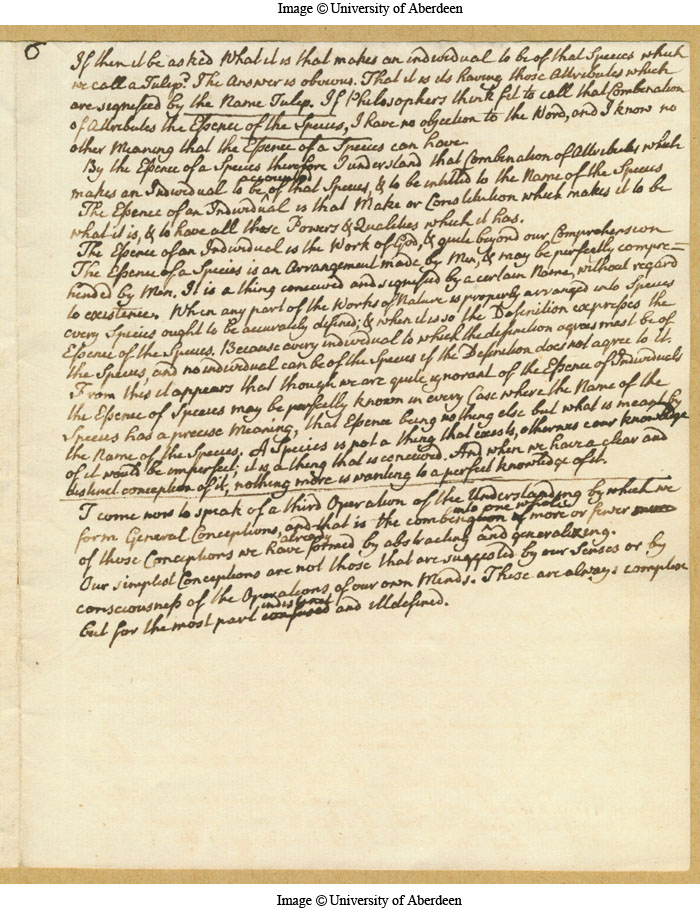 Image © University of Aberdeen
6
If then it be asked What it is that makes an individual to be of that Species which
we call a Tulip? The Answer is obvious. That it is its having those Attributes which
are signified by the Name Tulip. If Philosophers think fit to call that Combination
of Attributes the Essence of the Species, I have no objection to the Word, and I know no
other Meaning that the Essence of a Species can have.
By the Essence of a Species therefore I understand that Combination of Attributes which
accounted
makes an Individual to be of that Species, & to be intitled to the Name of the Species
The Essence of an Individual is that Make or Constitution which makes it to be
what it is, & to have all those Powers & Qualities which it has.
The Essence of an Individual is the Work of God, & quite beyond our Comprehension
The Essence of a Species is an Arrangement made by Men, & may be perfectly compre=
hended by Men. It is a thing conceived and signified by a certain Name, without regard
to existence. When any part of the Works of Nature is properly arranged into Species
every Species ought to be accurately defined; & when it is so the Definition expresses the
Essence of the Species. Because every individual to which the definition agrees must be of
the Species, and no individual can be of the Species if the Definition does not agree to it.
From this it appears that though we are quite ignorant of the Essence of Individuals
the Essence of Species may be perfectly known in every Case where the Name of the
Species has a precise Meaning, that Essence being nothing else but what is meant by
the Name of the Species. A Species is not a thing that exists, otherwise our knowledge
of it would be imperfect; it is a thing that is conceived. And when we have a clear and
distinct conception of it, nothing more is wanting to a perfect knowledge of it.
I come now to speak of a third Operation of the Understanding by which we
into one whole
form General Conceptions, and that is the combining of more or fewer
already
of those Conceptions we have formed by abstracting and generalizing.
Our simplest Conceptions are not those that are suggested by our Senses or by
consciousness of the Operations of our own Minds. These are always complex
indistinct
but for the most part confused and ill defined.
Image © University of Aberdeen